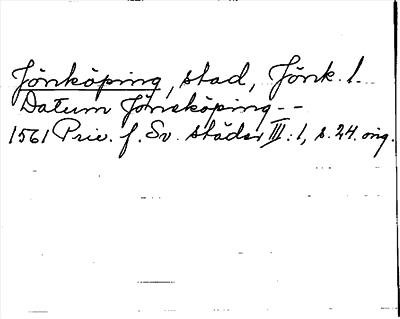 Jönköping, stad, Jönk. l.
Datum Jönsköping--
1561 Priv. f. Sv. städer III:1, s. 24. orig.